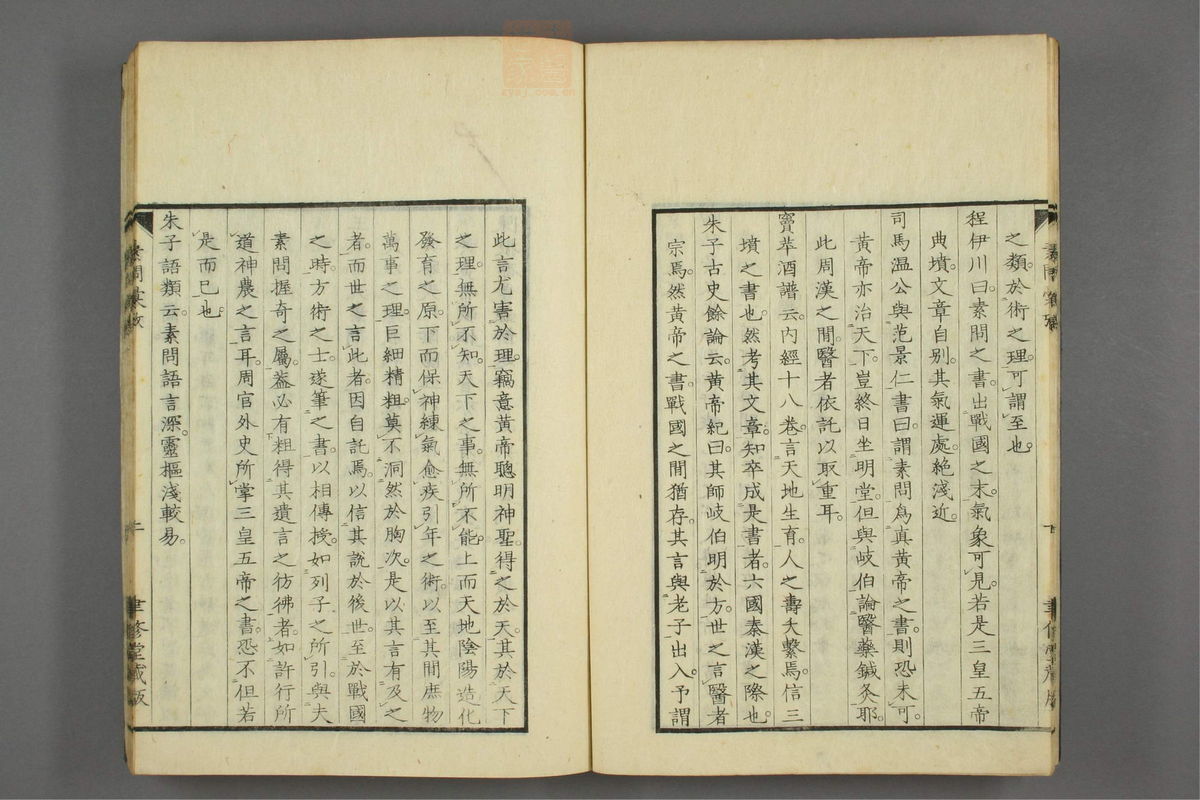 之類。於術之理。可謂至也。
程伊川曰素問之書。出戰國之末。氣象可見。若是三皇五帝
典墳文章自別。其氣運處絕淺近。
司馬溫公與范景仁書曰。謂素問爲真黃帝之書。則恐未可。
黃帝亦治天下。豈終日坐明堂。但與岐伯論醫藥鍼灸耶。
此周漢之間。醫者依託以取重耳。
竇苹酒譜云。內經十八卷。言天地生育。人之壽夭繫焉。信三
墳之書也。然考其文章。知卒成是書者。六國秦漢之際也。
朱子古史餘論云。黃帝紀曰。其師岐伯明於方。世之言醫者
宗焉。然黃帝之書。戰國之間猶存。其言與老子出入。予謂
此言尤害於理。竊意黃帝聰明神聖。得之於天。其於天下
之理。無所不知。天下之事。無所不能。上而天地陰陽造化
發育之原。下而保神練氣愈疾引年之術。以至其間庶物
萬事之理。巨細精粗。莫不洞然於胸次。是以其言有及之
者。而世之言此者。因自託焉。以信其說於後世。至於戰國
之時。方術之士。遂筆之書。以相傳授。如列子之所引。與夫
素問握奇之屬。蓋必有粗得其遺言之彷彿者。如許行所
道神農之言耳。周官外史所掌三皇五帝之書。恐不但若
是而已也。
朱子語類云。素問語言深。靈樞淺較易。
聿修堂藏版